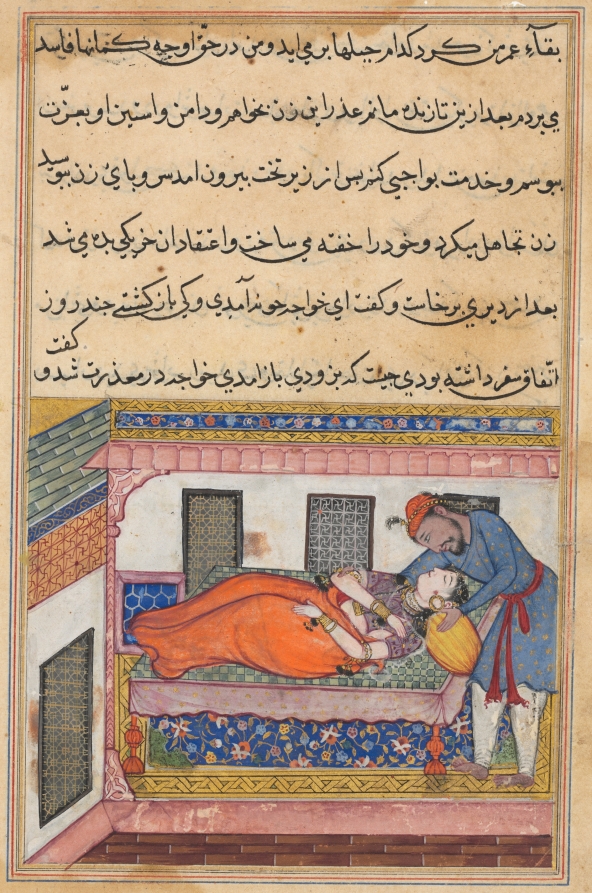 بقآء عمر من کرد کدام جبلها بر می اید و من در حقّ او چه کمانها فاسد
می بردم بعد ازین تا زنده مانم عذر این زن بخواهم و دامن و استین او بعزّت
ببوسم و خدمت بواجبی کنم بس از زیر تخت بیرون امد سر و بای زن ببوسید
زن تجاهل میکرد و خود را خفته می ساخت و اعتقاد ان خر یکی بده می شد
بعد از دیری برخاست و کفت ای خواجه چون آمدی و کی باز کشتی چند روز
اتّفاق سفر داشته بودی چیست که بزودی باز امدی خواجه در معذرت شد و کفت